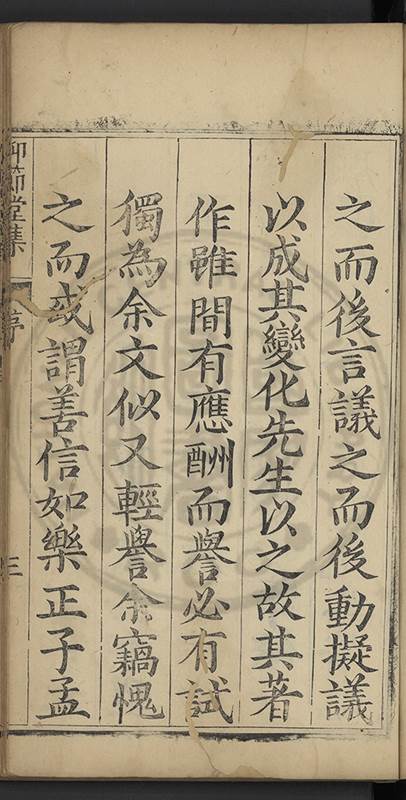 之而後言議之而後動擬議
以成其變化先生以之故其著
作雖間有應酬而譽必有試
獨為余文似又輕譽余竊愧
之而或謂善信如樂正子孟
仰節堂集
序
三